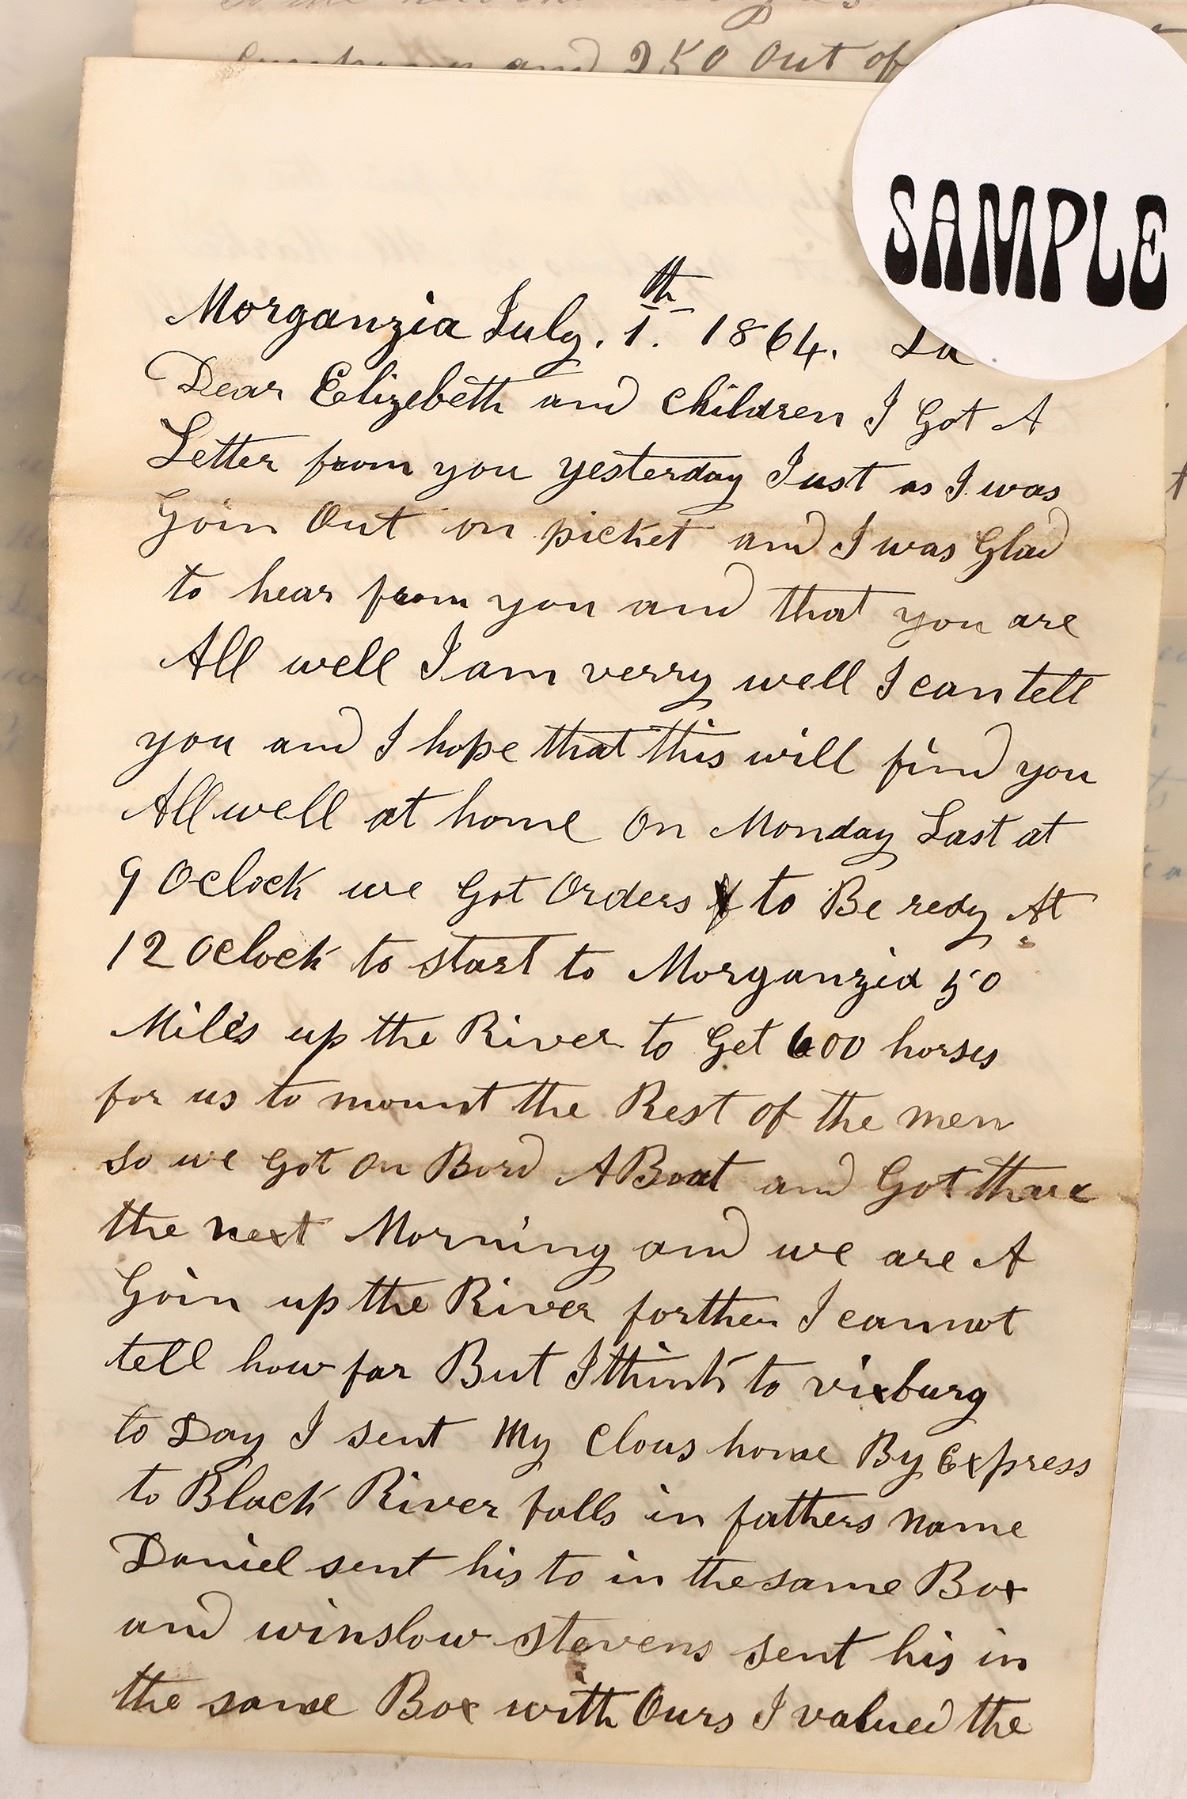 and 250 Out of
SAMPLE
Morganzia July. 1th. 1864. La
Dear Elizebeth and Children I Got A
Letter from you yesterday Just as I was
Goin Out on picket and I was Glad
to hear from you and that you are
All well I am verry well I can tell
you and I hope that this will find you
All well at home On Monday Last at
9 Oclock we Got Orders to Be redy At
12 Oclock to start to Morganzia 50
Miles up the River to Get 600 horses
for us to mount the Rest of the men
so we Got On Bord A Boat and Got thare
the next Morning and we are A
Goin up the River forther I cannot
tell how far But I think to vixburg
to Day I sent My Clous home By Express
to Black River falls in fathers name
Daniel sent his to in the same Box
and winslow stevens sent his in
the same Box with Ours I valued the